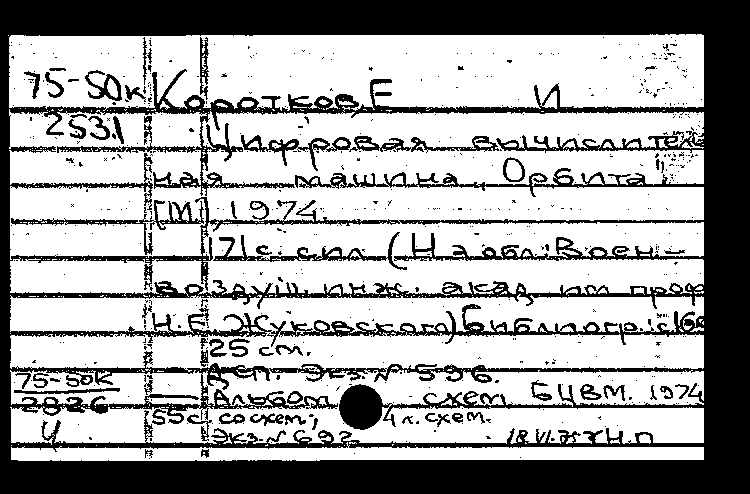 75-50к Коротков, Е И
2531 Цифровая вычислитель
ная машина „Орбита".
[М], 1974.
171 с. с ил (На обл.: Воен-
воздуш. инж. акад. им проф
Н.Е Жуковского) Библиогр.: с.
25 см.
ДСП. Экз. № 596.
75-50к
2826 Альбом схем БЦВМ. 1974
55 с. со схем., 4 л. схем.
Экз. № 692